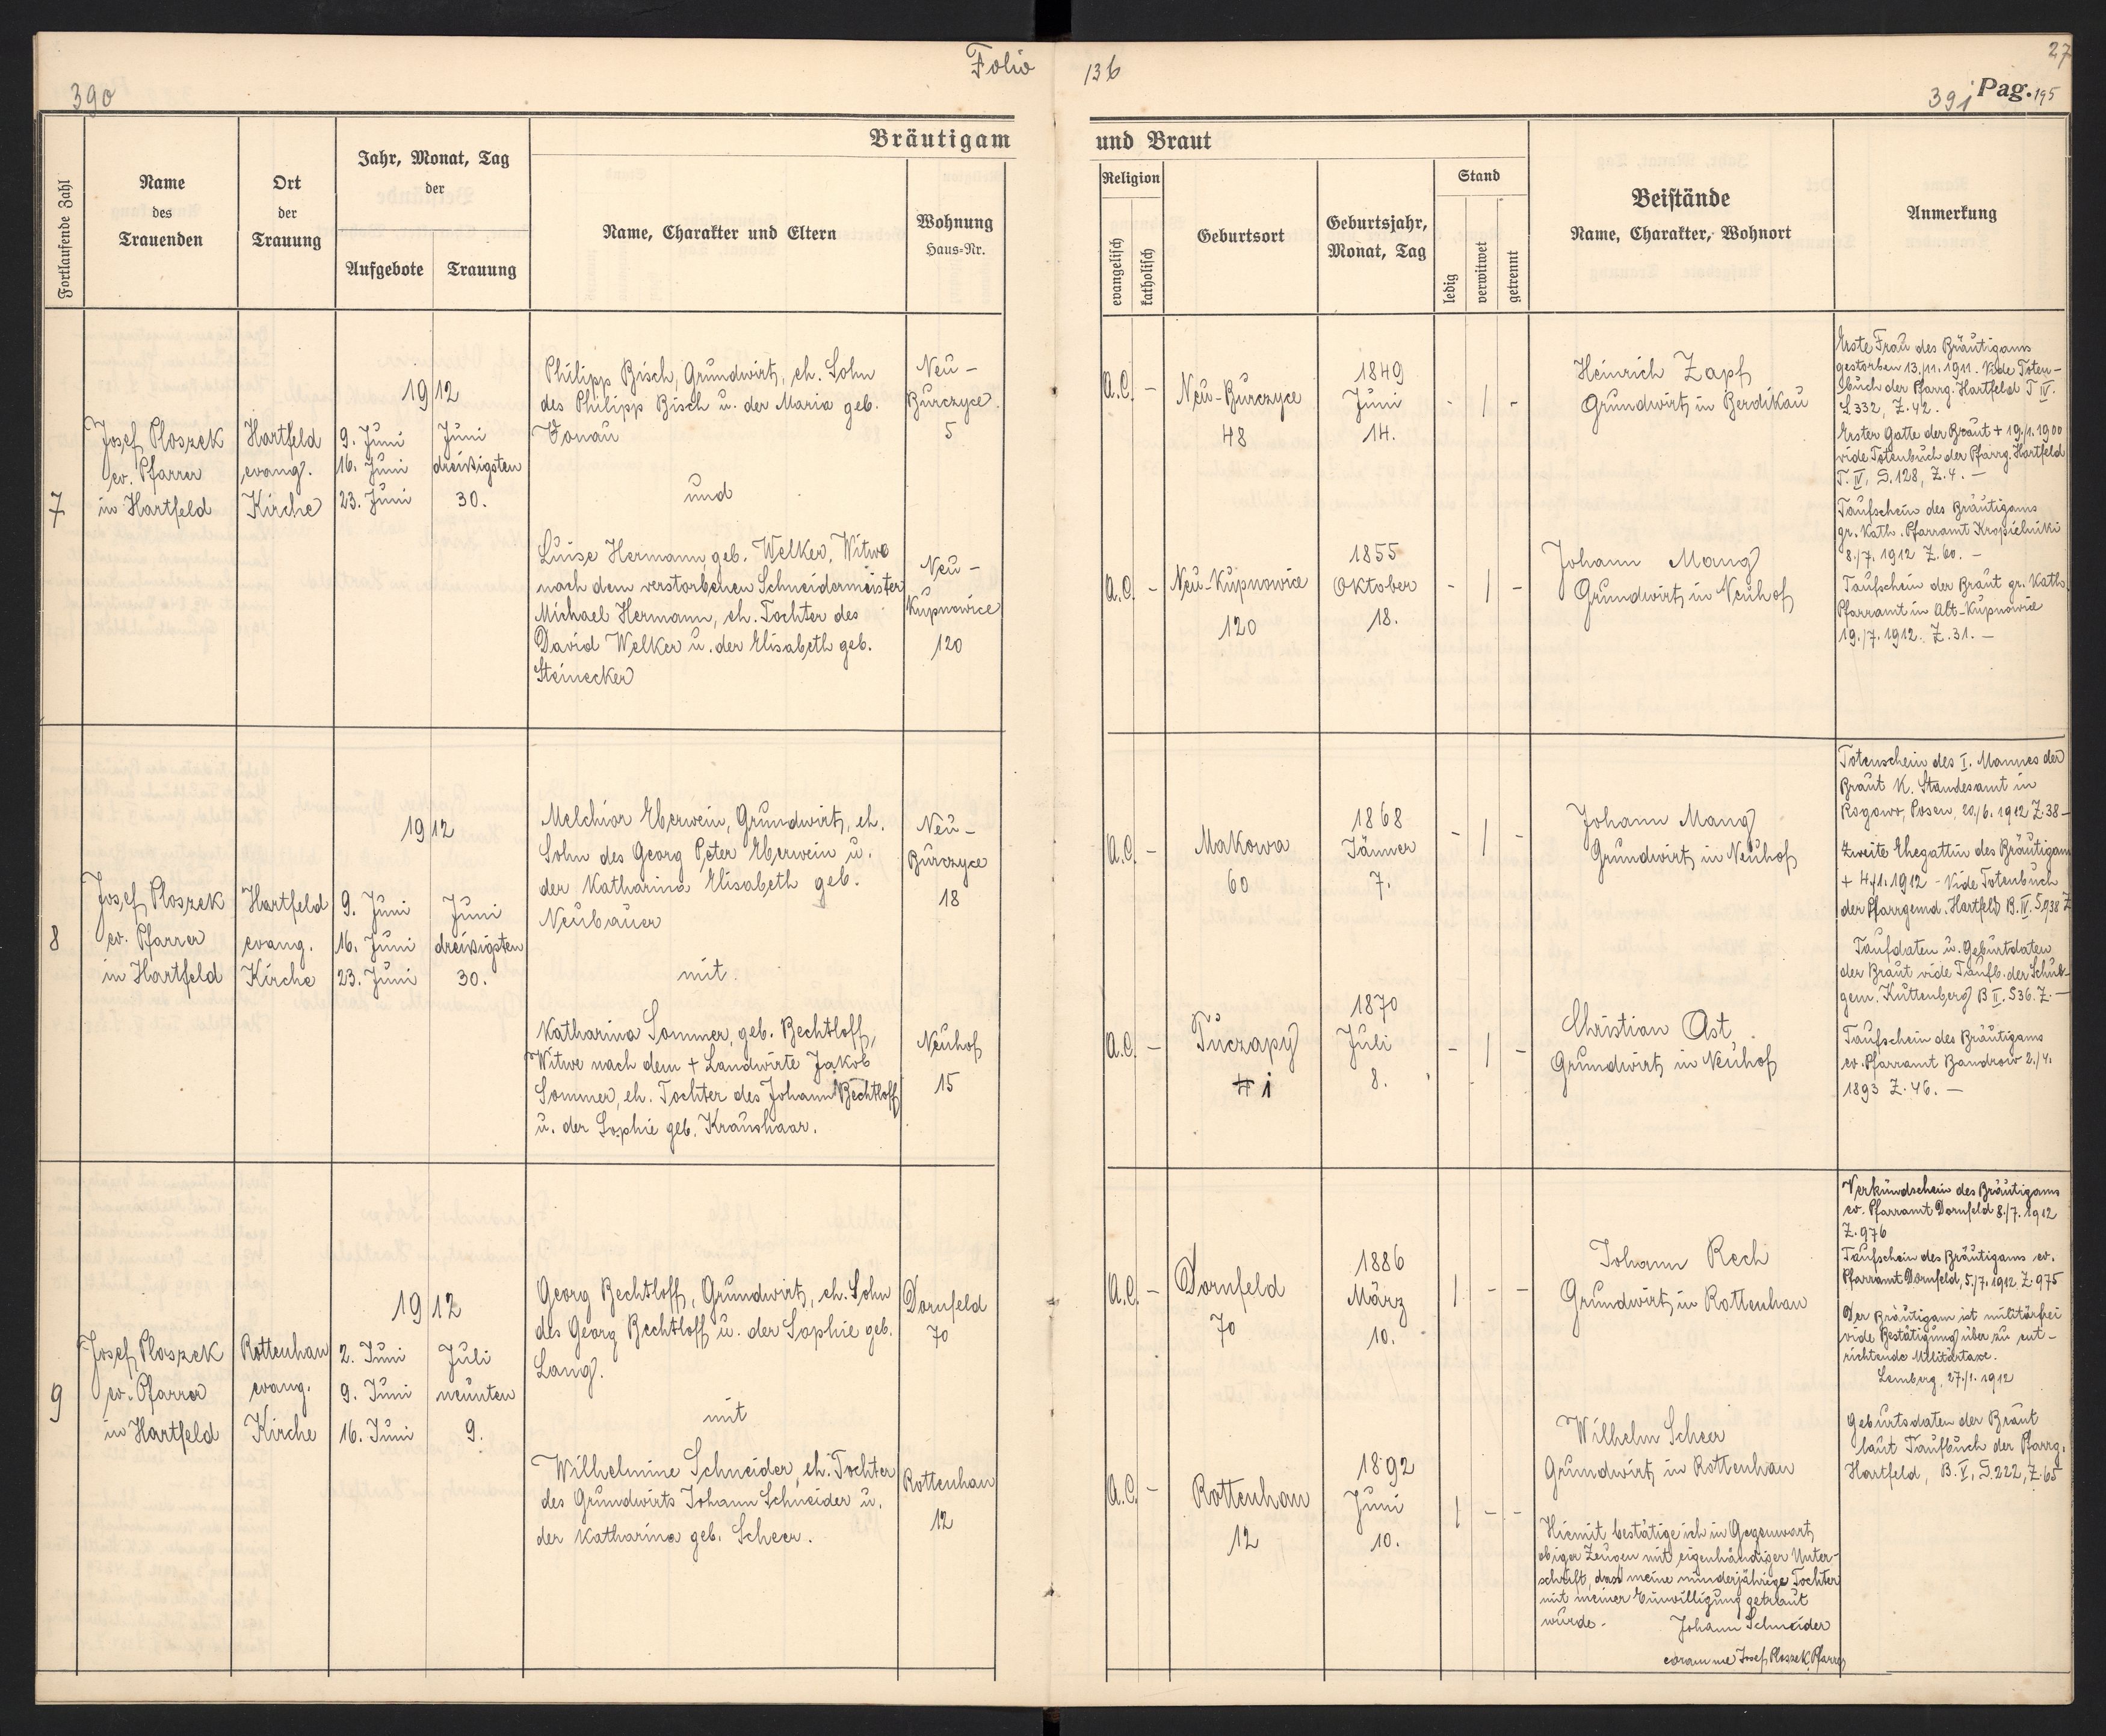 Folio
136
27
390
391 Pag. 195
Bräutigam
und Braut
Fortlaufende Zahl
Name
des
Trauenden
Ort
der
Trauung
Jahr, Monat, Tag
der
Aufgebote
Trauung
Name, Charakter und Eltern
Wohnung
Haus=Nr.
Religion
evangelisch
katholisch
Geburtsort
Geburtsjahr,
Monat, Tag
Stand
ledig
verwitwet
getrennt
Beistände
Name, Charakter, Wohnort
Anmerkung
7
Josef Ploszek
ev. Pfarrer
in Hartfeld
Hartfeld
evang.
Kirche
1912
9. Juni
16. Juni
23. Juni
Juni
dreißigsten
30.
Philipp Bisch, Grundwirt, eh. Sohn
des Philipp Bisch u. der Maria geb.
Donau
und
Luise Hermann, geb. Welker, Witwe
nach dem verstorbenen Schneidermeister
Michael Hermann, eh. Tochter des
David Welker u. der Elisabeth geb.
Steinecker
Neu-
Burczyce
5
Neu-
Kupnowice
120
A.C. -
Neu-Burczyce
48
1849
Juni
14.
- / -
A.C. -
Neu-Kupnowice
120
1855
Oktober
18.
- / -
Heinrich Zapf
Grundwirt in Berdikau
Johann Mang
Grundwirt in Neuhof
Erste Frau des Bräutigams
gestorben 13./11. 1911. Vide Toten-
buch der Pfarrg. Hartfeld T IV.
S 332, Z. 42.
Erster Gatte der Braut + 19./1. 1900
vide Totenbuch der Pfarrg. Hartfeld
T. IV, S. 128, Z. 4. -
Taufschein des Bräutigams
gr. Kath. Pfarramt Kropielniki
8./7. 1912 Z. 60. -
Taufschein der Braut gr. Kath.
Pfarramt in Alt-Kupnowice
19./7. 1912. Z. 31. -
8
Josef Ploszek
ev. Pfarrer
in Hartfeld
Hartfeld
evang.
Kirche
1912
9. Juni
16. Juni
23. Juni
Juni
dreißigsten
30.
Melchior Eberwein, Grundwirt, eh.
Sohn des Georg Peter Eberwein u.
der Katharina Elisabeth geb.
Neubauer
mit
Katharina Sommer, geb. Bechtloff,
Witwe nach dem + Landwirte Jakob
Sommer, eh. Tochter des Johann Bechtloff
u. der Sophie geb. Kraushaar.
Neu-
Burczyce
18
Neuhof
15
A.C. -
Makowa
60
1868
Jänner
7.
- / -
A.C. -
Tuczapy
# 1
1870
Juli
8.
- / -
Johann Mang
Grundwirt in Neuhof
Christian Ast
Grundwirt in Neuhof
Totenschein des I. Mannes der
Braut K. Standesamt in
Rogowo, Posen, 20./6. 1912 Z. 38 -
Zweite Ehegattin des Bräutigam
+ 4./1. 1912 - Vide Totenbuch
der Pfarrgemd. Hartfeld B. IV. S 938 Z
Taufdaten u. Geburtdaten
der Braut vide Taufb. der Schul-
gem. Kuttenberg B II. S 36. Z. -
Taufschein des Bräutigams
ev. Pfarramt Bandrow 2./4.
1893 Z. 46. -
9
Josef Ploszek
ev. Pfarrer
in Hartfeld
Rottenhan
evang.
Kirche
1912
2. Juni
9. Juni
16. Juni
Juli
neunten
9.
Georg Bechtloff, Grundwirt, eh. Sohn
des Georg Bechtloff u. der Sophie geb.
Lang.
mit
Wilhelmine Schneider, eh. Tochter
des Grundwirts Johann Schneider u.
der Katharina geb. Scheer.
Dornfeld
70
Rottenhan
12
A.C. -
Dornfeld
70
1886
März
10.
/ - -
A.C. -
Rottenhan
12
1892
Juni
10.
/ - -
Johann Rech
Grundwirt in Rottenhan
Wilhelm Scheer
Grundwirt in Rottenhan
Hiemit bestätige ich in Gegenwart
obiger Zeugen mit eigenhändiger Unter-
schrift, dass meine minderjährige Tochter
mit meiner Einwilligung getraut
wurde. - Johann Schneider
coram me Josef Ploszek Pfarrer
Verkündschein des Bräutigams
ev. Pfarramt Dornfeld 8./7. 1912
Z. 976
Taufschein des Bräutigams ev.
Pfarramt Dornfeld, 5./7. 1912 Z. 975
Der Bräutigam ist militärfrei
vide Bestätigung über zu ent-
richtende Militärtaxe.
Lemberg, 27./1. 1912
Geburtsdaten der Braut
laut Taufbuch der Pfarrg.
Hartfeld, B. V, S. 222, Z. 65